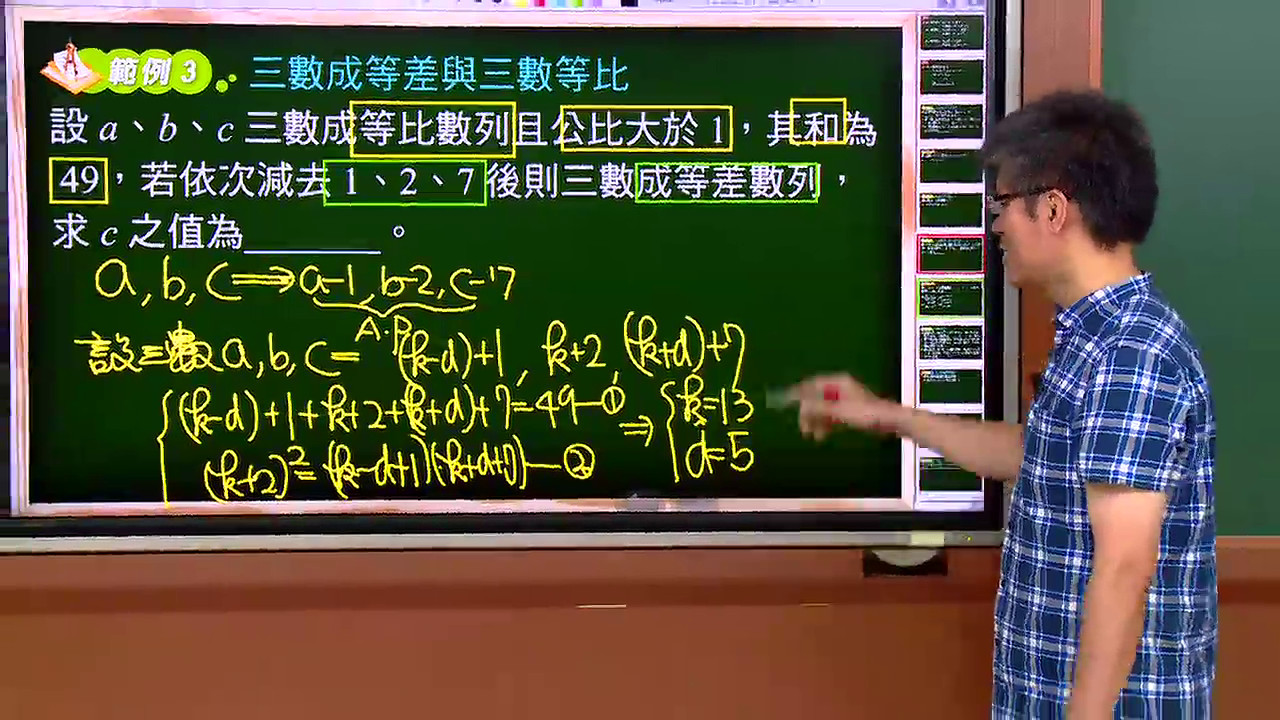 範例 3 三數成等差與三數等比
設 a、b、c 三數成等比數列且公比大於 1,其和為
49,若依次減去 1、2、7 後則三數成等差數列,
求 c 之值為______。
a, b, c ⟹ a-1, b-2, c-7
A.P
設三數 a, b, c = (k-d)+1, k+2, (k+d)+7
(k-d)+1+k+2+(k+d)+7=49—①
(k+2)²=(k-d+1)(k+d+7)—②
⇒ k=13
d=5